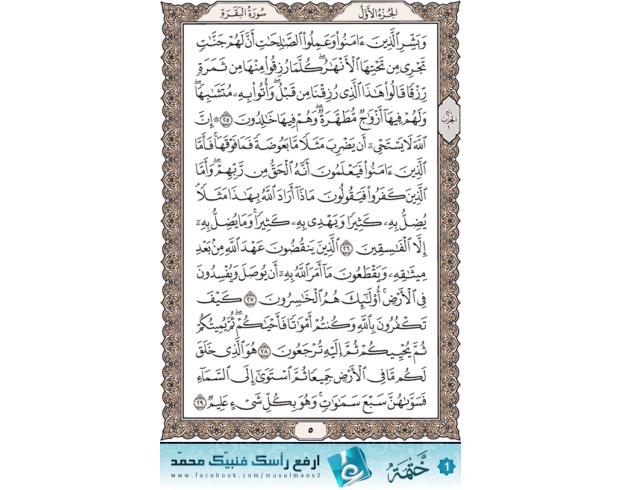 الجزء الأول
سورة البقرة
وَبَشِّرِ ٱلَّذِينَ ءَامَنُوا۟ وَعَمِلُوا۟ ٱلصَّٰلِحَٰتِ أَنَّ لَهُمْ جَنَّٰتٍ
تَجْرِى مِن تَحْتِهَا ٱلْأَنْهَٰرُ ۖ كُلَّمَا رُزِقُوا۟ مِنْهَا مِن ثَمَرَةٍ
رِّزْقًا ۙ قَالُوا۟ هَٰذَا ٱلَّذِى رُزِقْنَا مِن قَبْلُ ۖ وَأُتُوا۟ بِهِۦ مُتَشَٰبِهًا ۖ
وَلَهُمْ فِيهَآ أَزْوَٰجٌ مُّطَهَّرَةٌ ۖ وَهُمْ فِيهَا خَٰلِدُونَ ٢٥ ۞ إِنَّ
ٱللَّهَ لَا يَسْتَحْىِۦٓ أَن يَضْرِبَ مَثَلًا مَّا بَعُوضَةً فَمَا فَوْقَهَا ۚ فَأَمَّا
ٱلَّذِينَ ءَامَنُوا۟ فَيَعْلَمُونَ أَنَّهُ ٱلْحَقُّ مِن رَّبِّهِمْ ۖ وَأَمَّا
ٱلَّذِينَ كَفَرُوا۟ فَيَقُولُونَ مَاذَآ أَرَادَ ٱللَّهُ بِهَٰذَا مَثَلًا ۘ
يُضِلُّ بِهِۦ كَثِيرًا وَيَهْدِى بِهِۦ كَثِيرًا ۚ وَمَا يُضِلُّ بِهِۦٓ
إِلَّا ٱلْفَٰسِقِينَ ٢٦ ٱلَّذِينَ يَنقُضُونَ عَهْدَ ٱللَّهِ مِنۢ بَعْدِ
مِيثَٰقِهِۦ وَيَقْطَعُونَ مَآ أَمَرَ ٱللَّهُ بِهِۦٓ أَن يُوصَلَ وَيُفْسِدُونَ
فِى ٱلْأَرْضِ ۚ أُو۟لَٰٓئِكَ هُمُ ٱلْخَٰسِرُونَ ٢٧ كَيْفَ
تَكْفُرُونَ بِٱللَّهِ وَكُنتُمْ أَمْوَٰتًا فَأَحْيَٰكُمْ ۖ ثُمَّ يُمِيتُكُمْ
ثُمَّ يُحْيِيكُمْ ثُمَّ إِلَيْهِ تُرْجَعُونَ ٢٨ هُوَ ٱلَّذِى خَلَقَ
لَكُم مَّا فِى ٱلْأَرْضِ جَمِيعًا ثُمَّ ٱسْتَوَىٰٓ إِلَى ٱلسَّمَآءِ
فَسَوَّىٰهُنَّ سَبْعَ سَمَٰوَٰتٍ ۚ وَهُوَ بِكُلِّ شَىْءٍ عَلِيمٌ ٢٩
٥
١ ختمة
ارفع رأسك فنبيّك محمّد
www.facebook.com/musulmans2